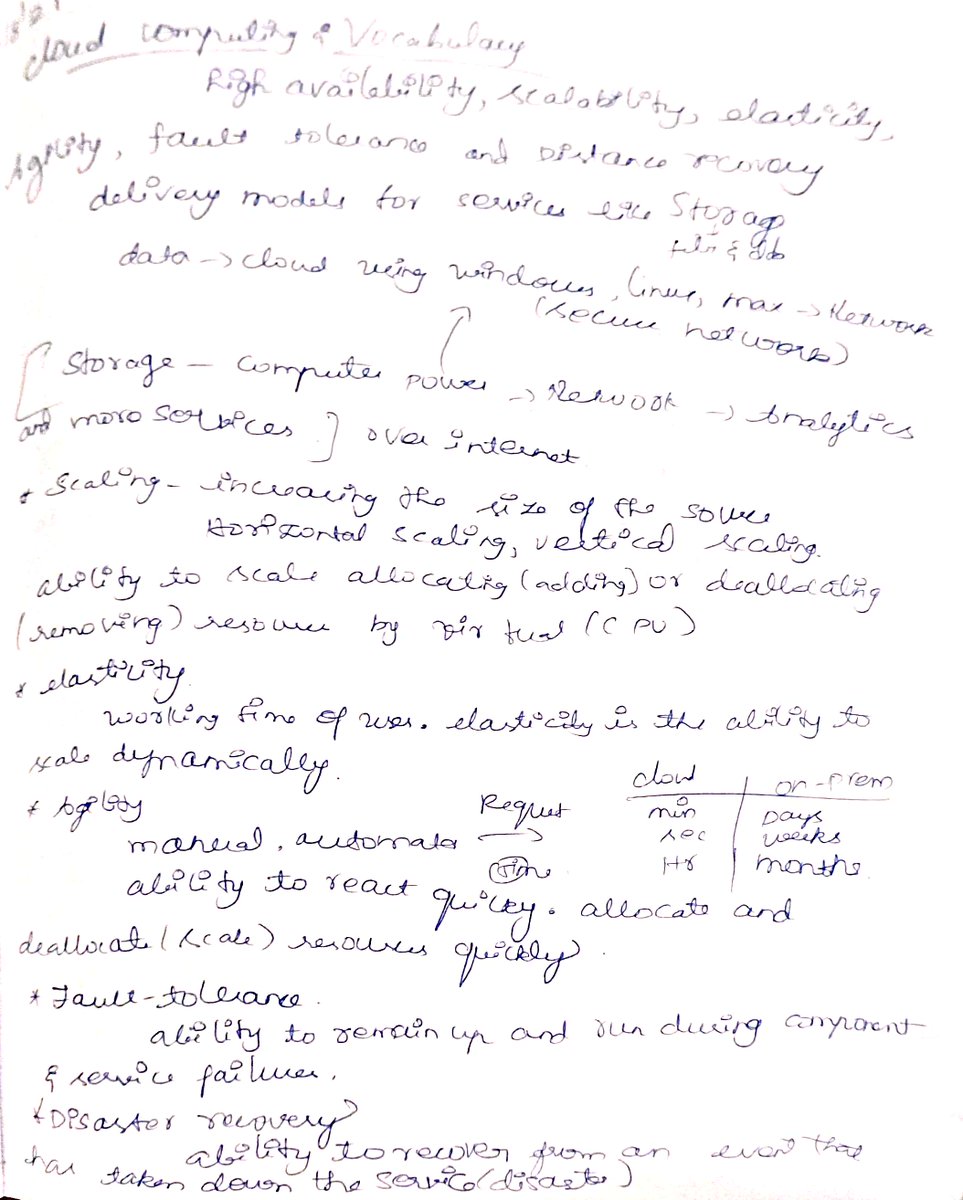 cloud computing & Vocabulary
high availability, scalability, elasticity,
Agility, fault tolerance and Distance recovery
delivery models for services like Storage
file & db
data -> cloud using windows, linux, max -> Network
(secure network)
[Storage - computer power -> Network -> Analytics
and more services] over internet
* Scaling - increasing the size of the source
Horizontal scaling, vertical scaling.
ability to scale allocating (adding) or deallocating
(removing) resource by virtual (CPU)
* elasticity
working time of user. elasticity is the ability to
scale dynamically.
cloud | on-prem
* Agility Request min | Days
manual, automata -> sec | weeks
(Time) Hr | months
ability to react quickly. allocate and
deallocate (scale) resources quickly.
* Fault-tolerance.
ability to remain up and run during component
& service failures.
* Disaster recovery
ability to recover from an event that
has taken down the service (disaster)